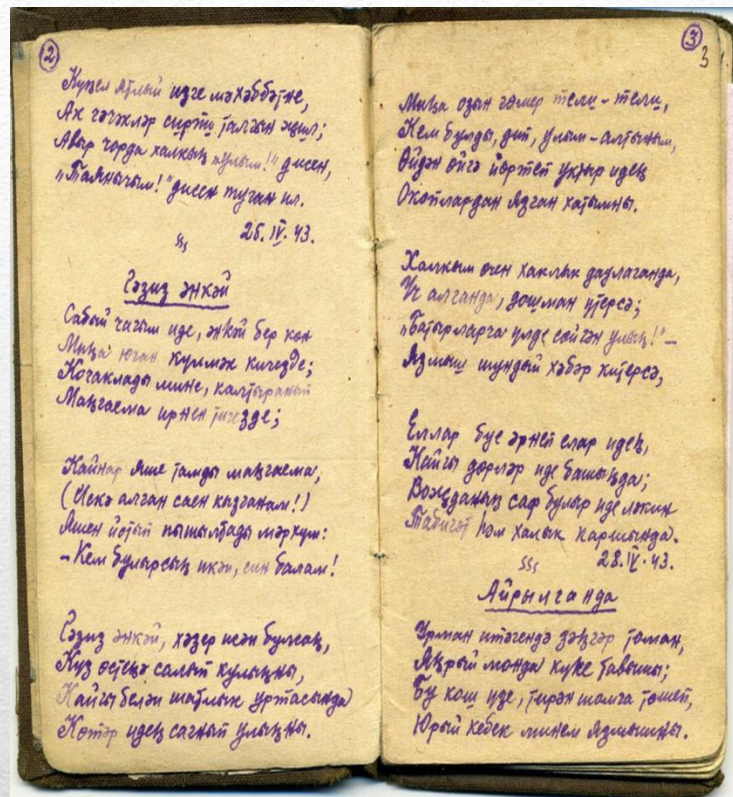 2
Күңел атлый изге мәхәббәтне,
Ак чәчәкләр сирпи талгын җил;
Авыр чорда халкың „улым!" дисен,
„Таянычым!" дисен туган ил.
26.IV.43.
Газиз әнкәй
Сабый чагым иде, әнкәй бер көн
Миңа юган күлмәк кигезде;
Кочаклады мине, калтыранып
Маңгаема ирнен тигезде;
Кайнар яше тамды маңгаема,
(Искә алган саен кызганам!)
Яшен йотып пышылдады мәрхүм:
– Кем булырсың икән, син балам!
Газиз әнкәй, хәзер исән булсаң,
Күз өстеңә салып кулыңны,
Кайгы белән шатлык уртасында
Көтәр идең сагнып улыңны.
3
3
Миңа озын гомер тели-тели,
Кем булды, дип, улым-алтыным,
Өйдән өйгә йөртеп укытыр идең
Окоплардан язган хатымны.
Халкым өчен хаклык даулаганда,
Үч алганда, дошман үтерсә;
„Батырларча үлде сөйгән улың!" –
Язмыш шундый хәбәр китерсә,
Еллар буе әрнеп елар идең,
Кайгы дөрләр иде башыңда;
Вөҗданың саф булыр иде ләкин
Табигать һәм халык каршында.
28.IV.43.
Айрылганда
Урман итәгендә зәңгәр томан,
Аңрый монда күке тавышы;
Бу кош үзе, тирән шомга төшеп,
Юрый кебек минем язмышны.